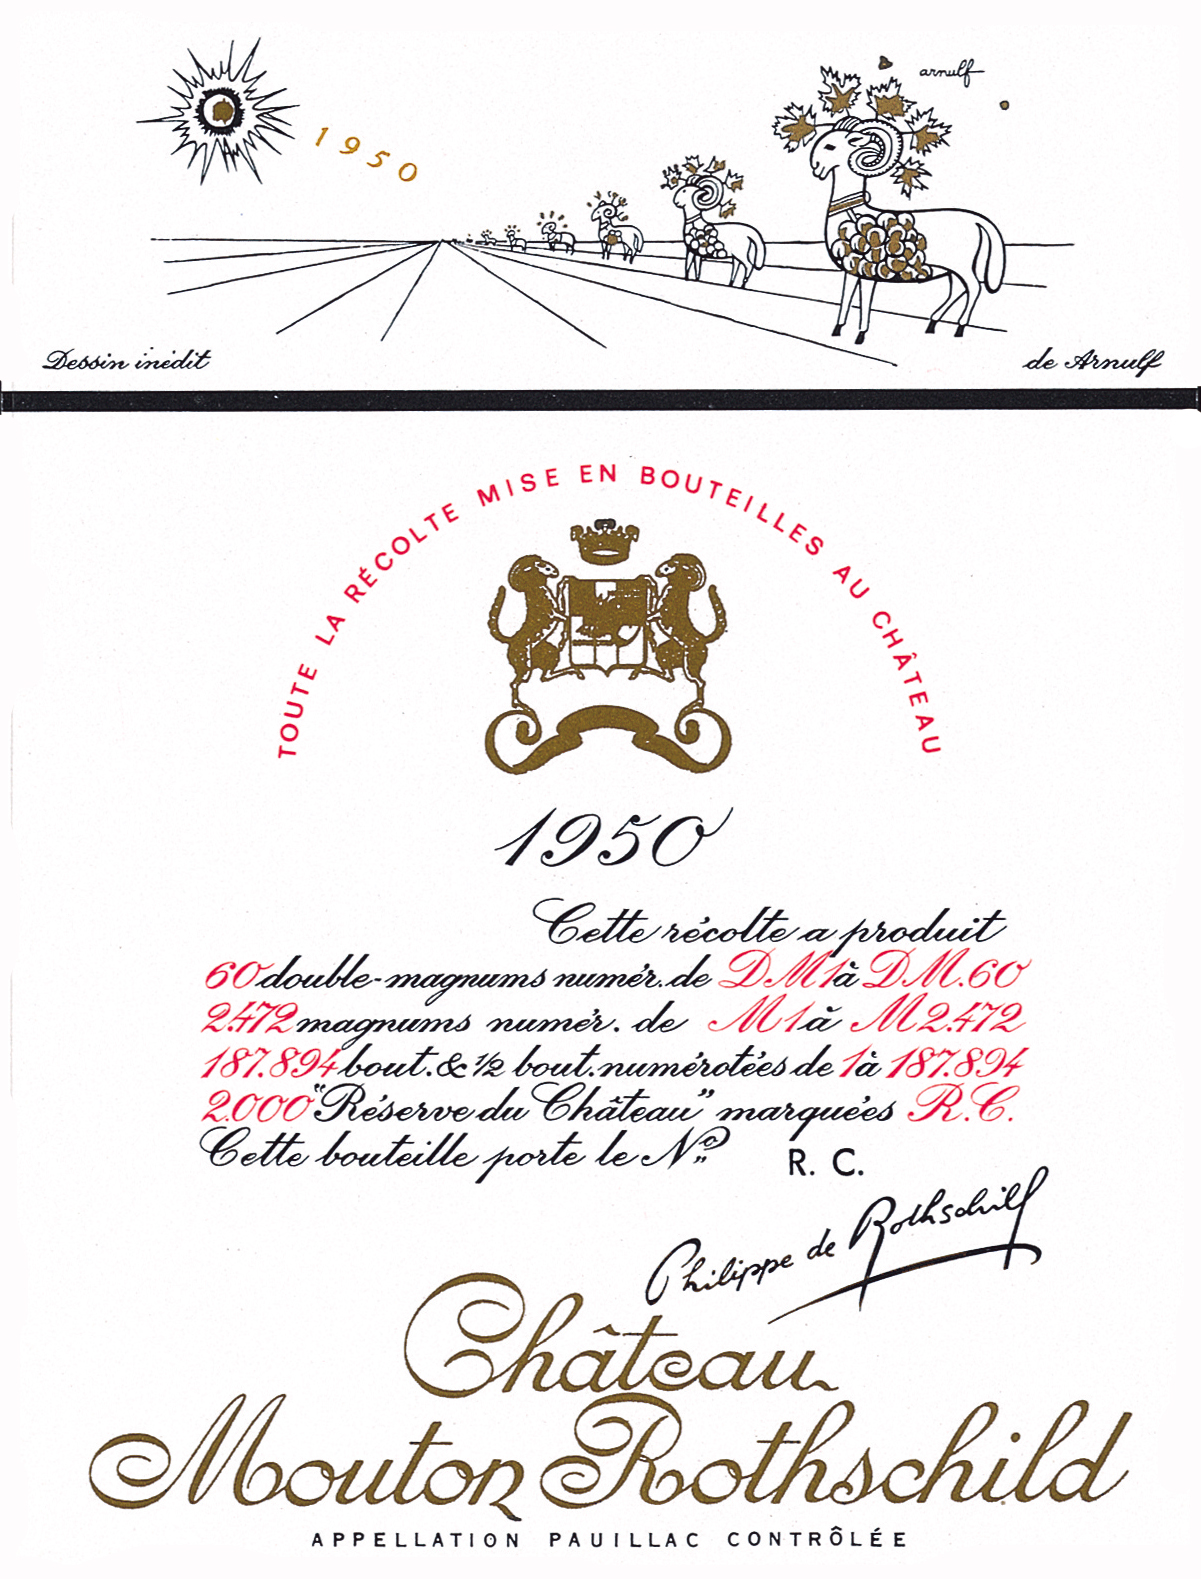 arnulf
1950
Dessin inédit de Arnulf
TOUTE LA RÉCOLTE MISE EN BOUTEILLES AU CHÂTEAU
1950
Cette récolte a produit
60 double-magnums numér. de DM1 à DM.60
2.472 magnums numér. de M1 à M2.472
187.894 bout. & 1/2 bout. numérotées de 1 à 187.894
2.000 "Réserve du Château" marquées R.C.
Cette bouteille porte le Nº R. C.
Philippe de Rothschild
Château
Mouton Rothschild
APPELLATION PAUILLAC CONTRÔLÉE